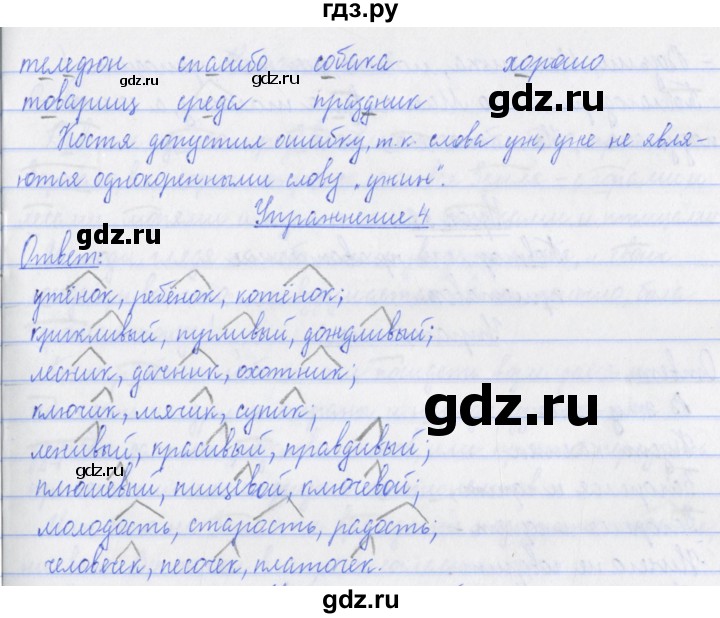 гдз.ру
телефон спасибо собака хорошо
gdz.ru gdz.ru
товарищ среда праздник
Костя допустил ошибку, т.к. слова уж, уже не явля-
ются однокоренными слову „ужин".
Упражнение 4
gdz.ru
Ответ:
утёнок, ребёнок, котёнок;
крикливый, пугливый, дождливый;
лесник, дачник, охотник;
gdz.ru
ключик, мячик, супик;
ленивый, красивый, правдивый;
gdz.ru gdz.ru
плюшевый, пищевой, ключевой;
молодость, старость, радость;
человечек, песочек, платочек.
gdz.ru